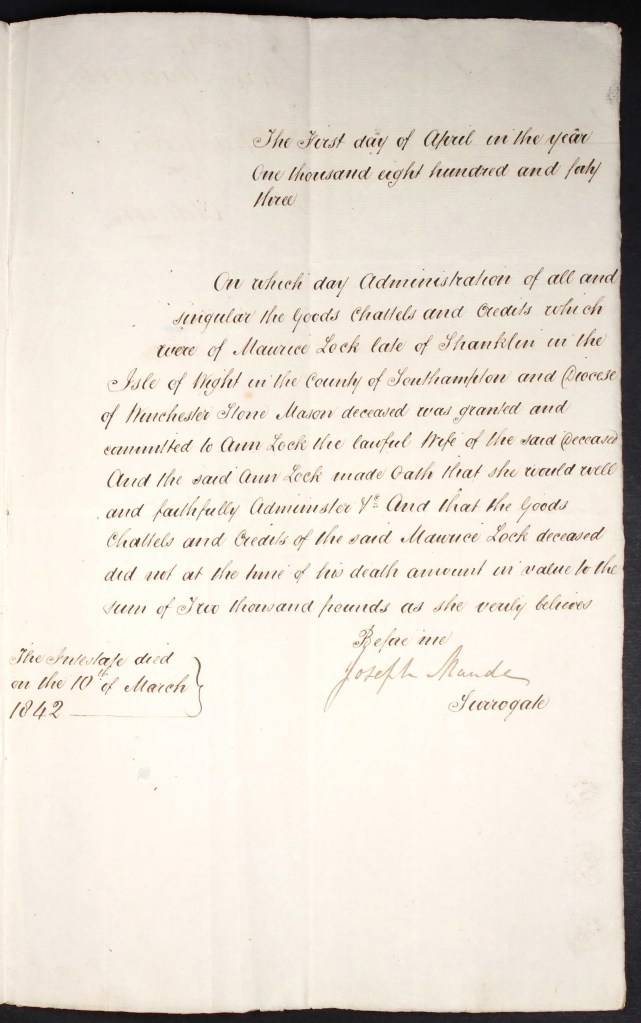 The First day of April in the year
One thousand eight hundred and forty
three
On which day Administration of all and
singular the Goods Chattels and Credits which
were of Maurice Lock late of Shanklin in the
Isle of Wight in the County of Southampton and Diocese
of Winchester Stone Mason deceased was granted and
committed to Ann Lock the lawful Wife of the said Deceased
And the said Ann Lock made Oath that she would well
and faithfully Administer &c And that the Goods
Chattels and Credits of the said Maurice Lock deceased
did not at the time of his death amount in value to the
sum of Two thousand pounds as she verily believes
Before me
Joseph Maude
Surrogate
The Intestate died
on the 10th of March
1842